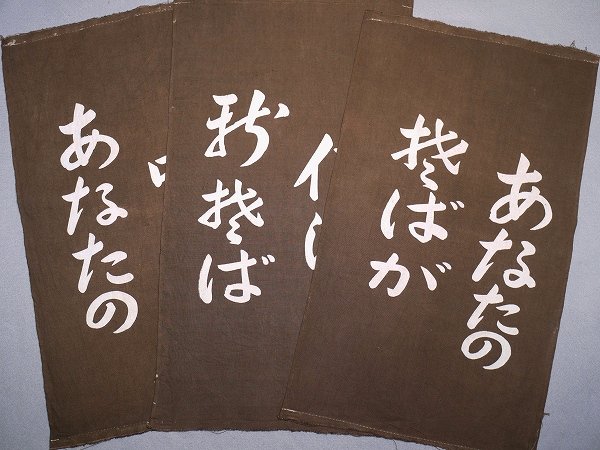 あなたの
そばが
新そば
あなたの